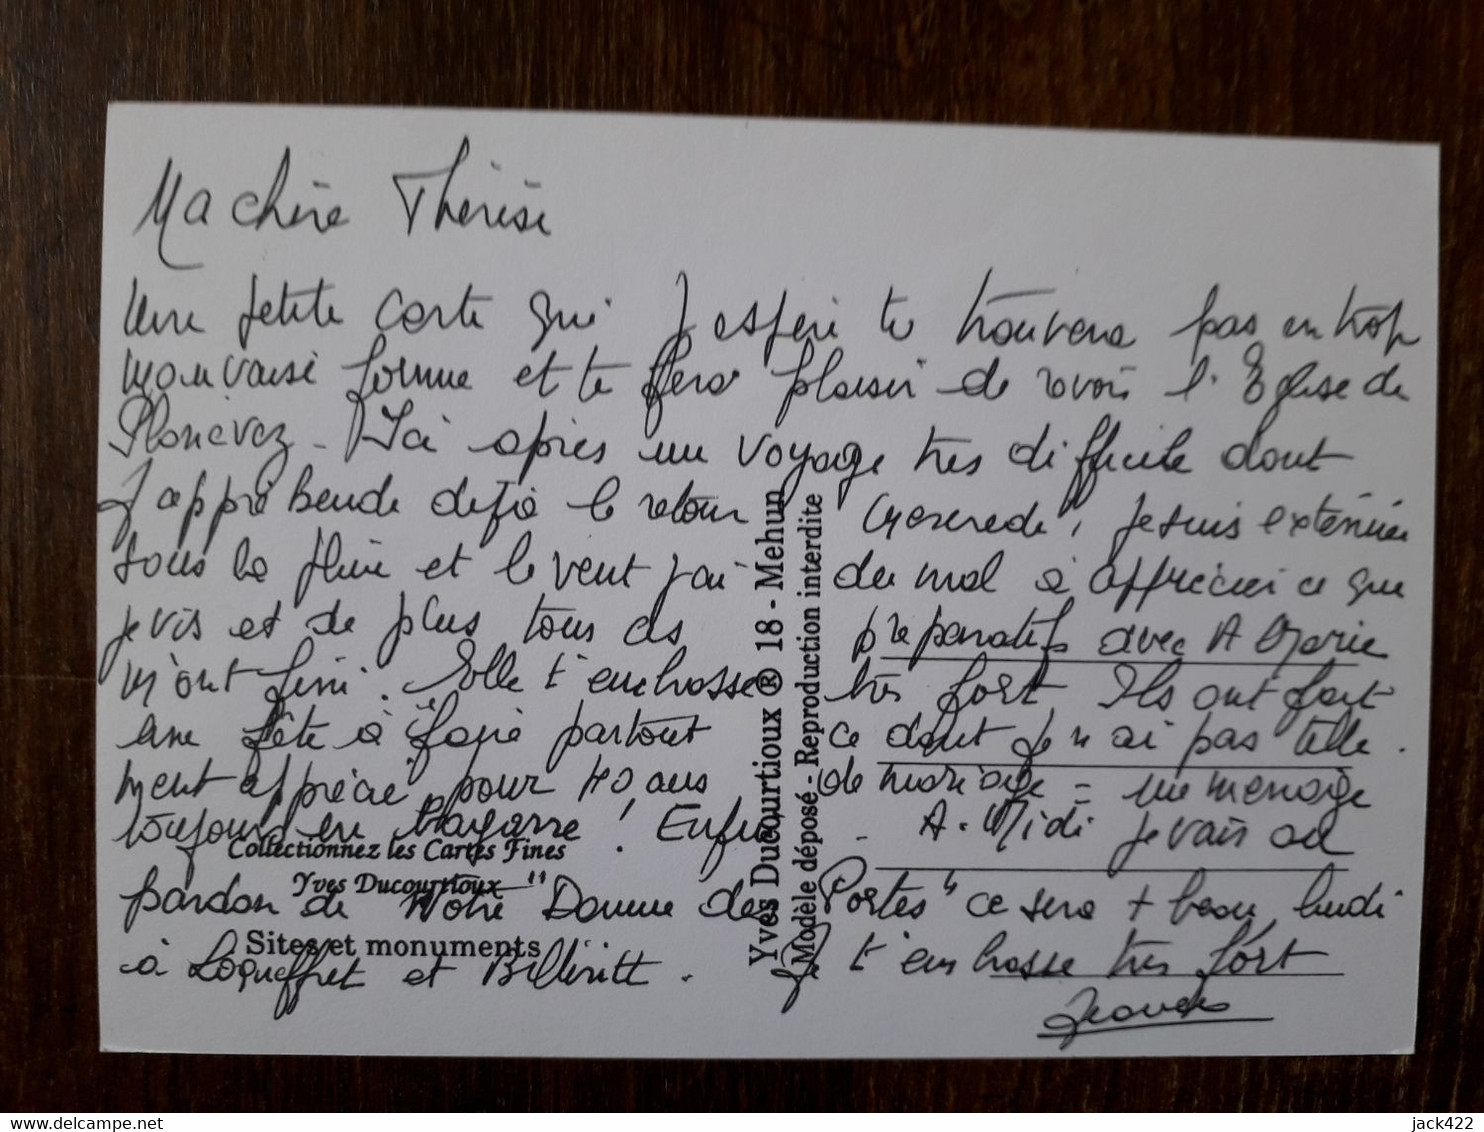 Ma chère Thérèse
Une petite carte qui j'espère te trouvera pas en trop
mauvaise forme et te fera plaisir de revoir l'Eglise de
Plonévez - Ici après un voyage très difficile dont
J'appréhende déjà le retour Mercredi, Je suis exténuée
sous la pluie et le vent j'ai du mal à apprécier ce que
je vis et de plus tous ces préparatifs avec A Marie
m'ont fini. Elle t'embrasse très fort Ils ont fait
une fête à partout ce dont je n'ai pas telle.
ment apprécié, pour 40 ans de mariage = une menage
toujours en ! Enfin - A. Midi je vais au
pardon de "Notre Damme des Portes" ce sera + beau, lundi
à Loqueffret et . Je t'embrasse très fort
Collectionnez les Cartes Fines
Yves Ducourtioux
Sites et monuments
Yves Ducourtioux ® 18 - Mehun
Modèle déposé - Reproduction interdite
www.delcampe.net
jack422